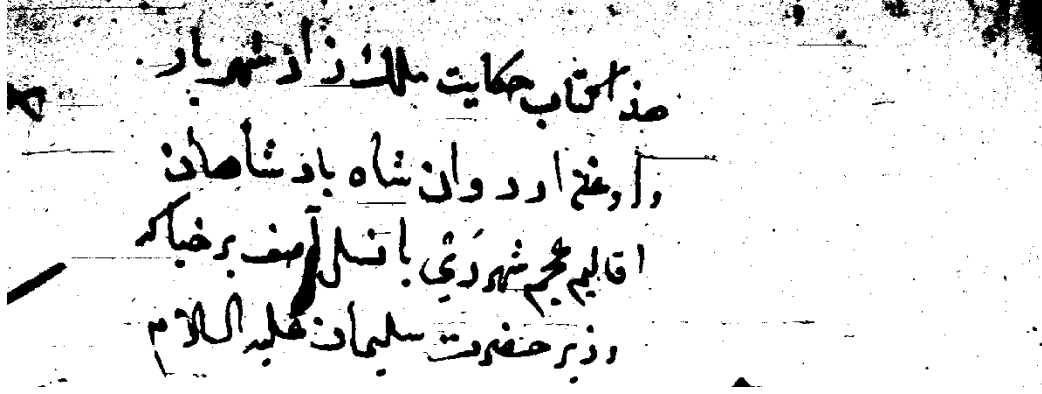 هذا كتاب حكايت ملك زاد شهريار
اردوان شاه بادشاهان
اقاليم عجم شهر دي با نسل آصف برخيا كه
وزير حضرت سليمان عليه السلام